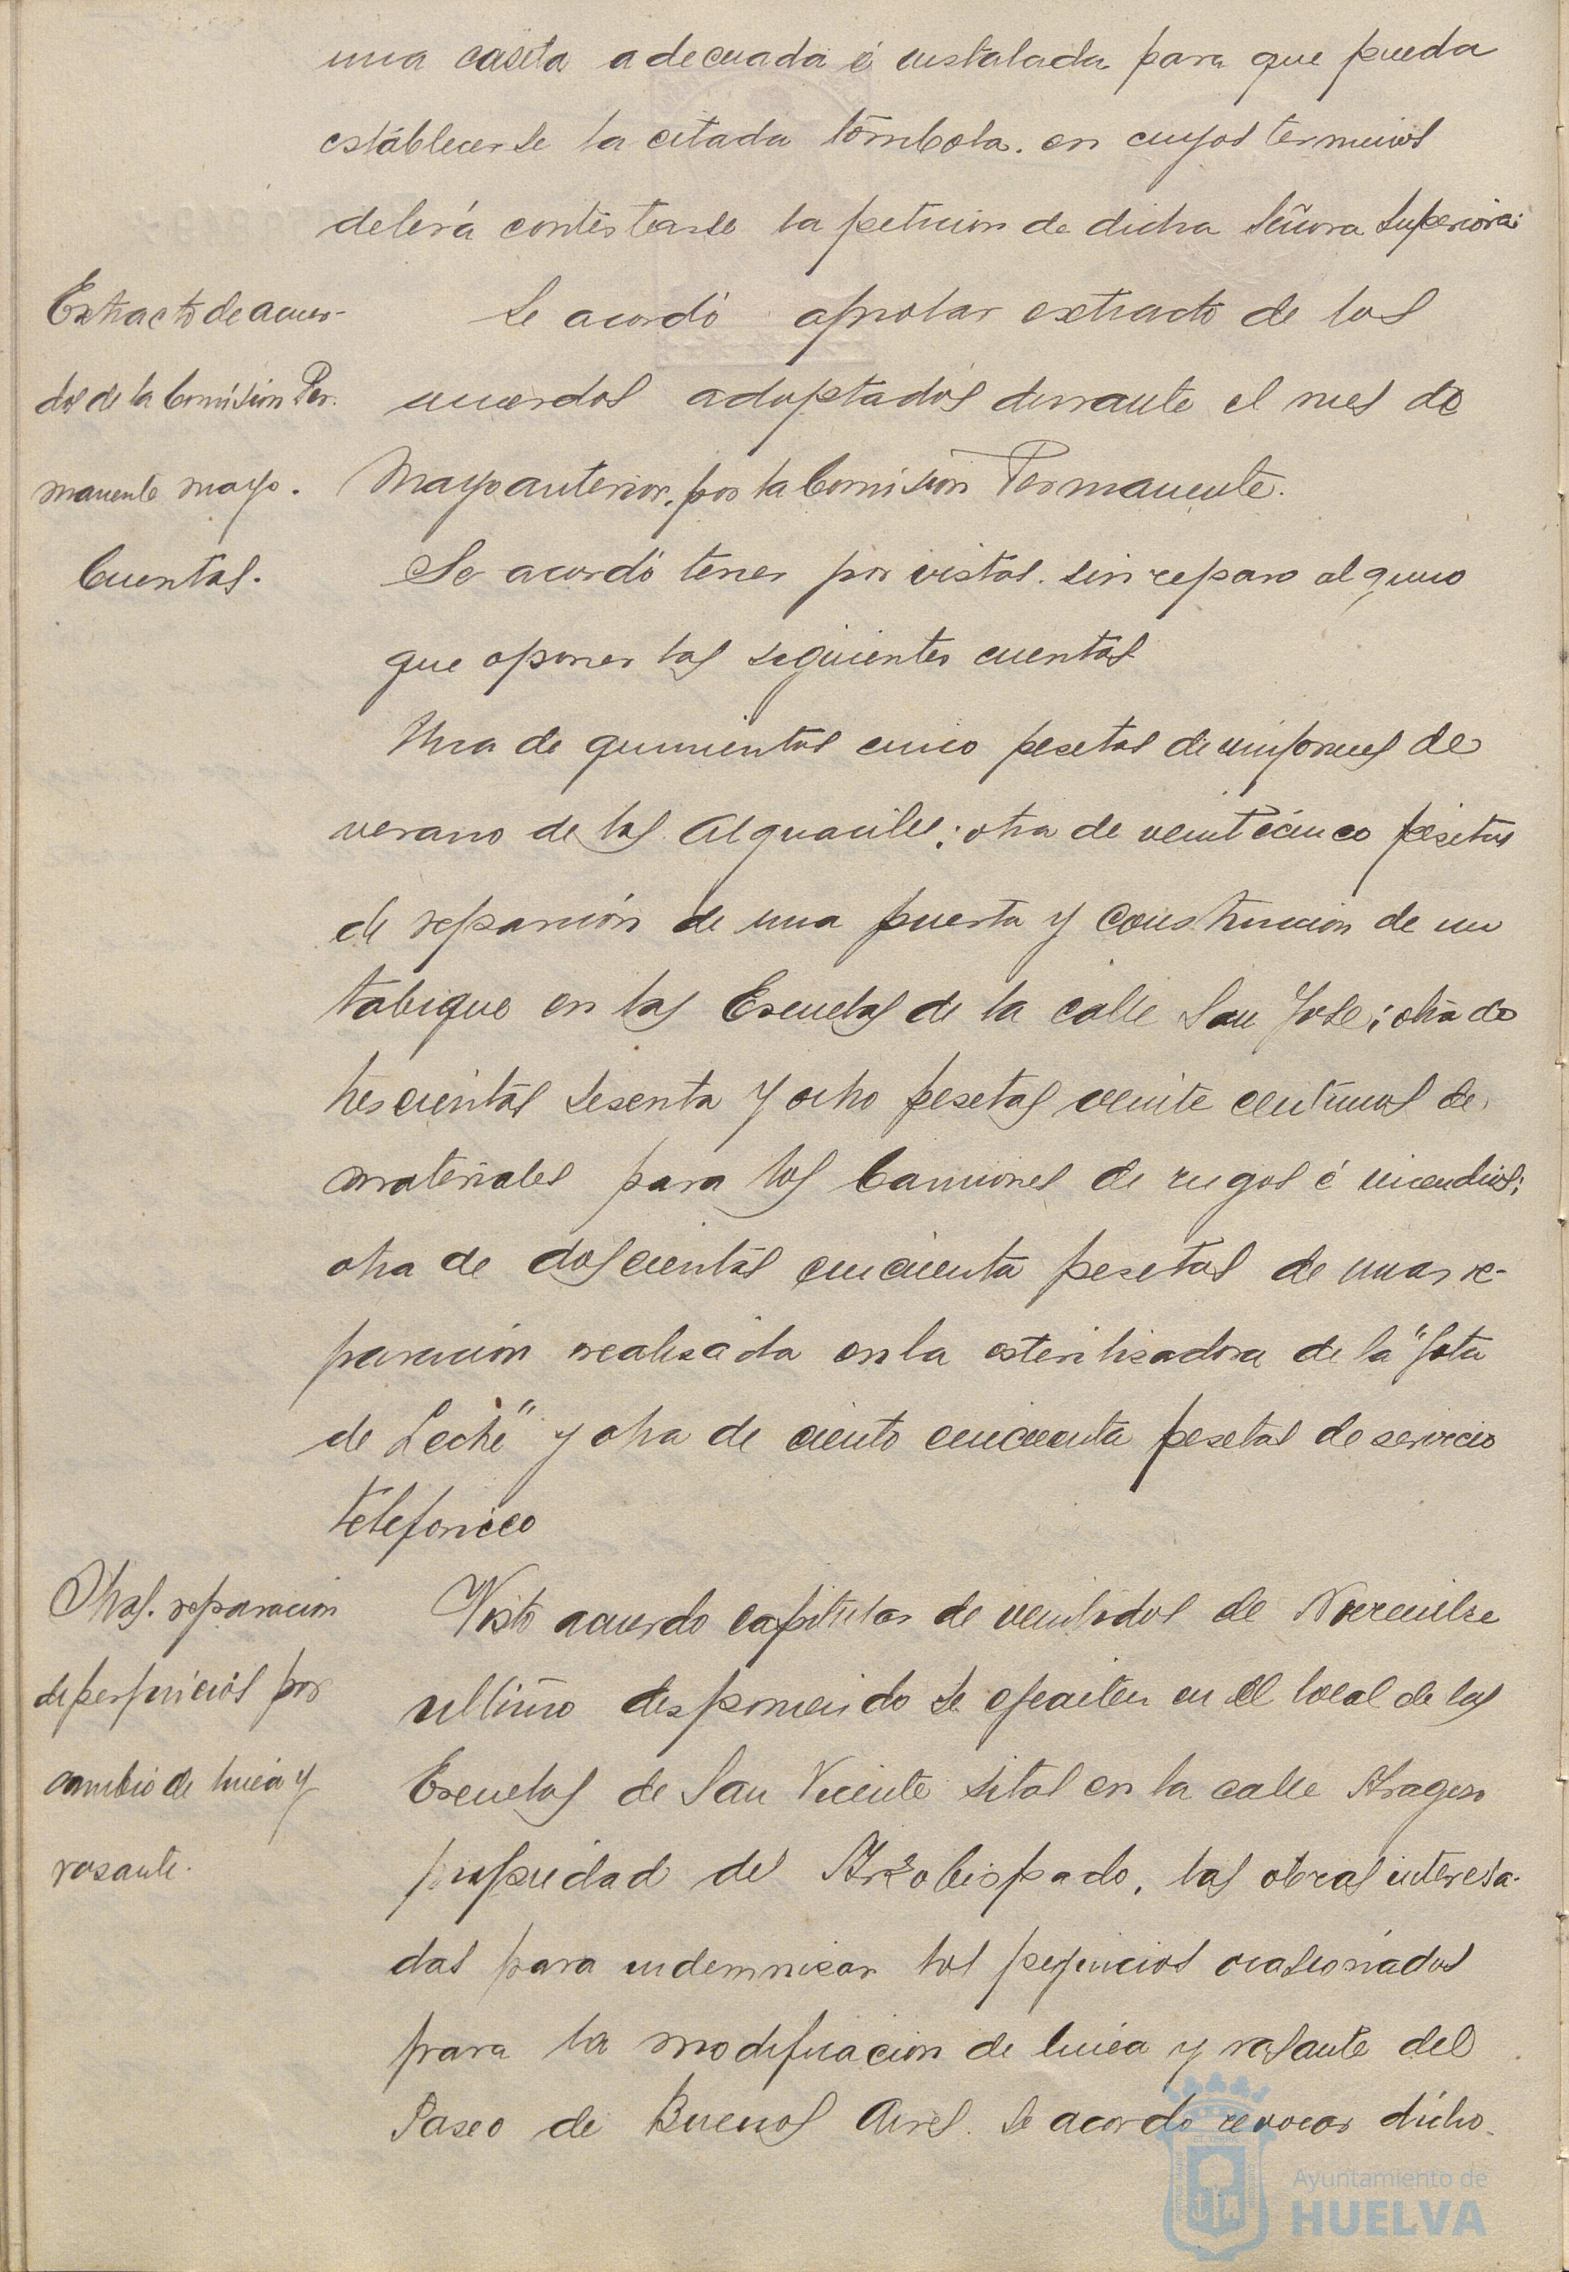 una caseta adecuada é instalada para que pueda
establecerse la citada tómbola. en cuyos terminos
deberá contestarse la peticion de dicha Señora Superiora.
Extracto de acuer-
dos de la Comisión Per-
manente mayo.
Se acordó aprobar extracto de los
acuerdos adoptados durante el mes de
Mayo anterior, por la Comisión Permanente.
Cuentas.
Se acordó tener por vistas. sin reparo alguno
que oponer las siguientes cuentas
Una de quinientas cinco pesetas de uniformes de
verano de los Alguaciles; otra de veinticinco pesetas
de reparación de una puerta y construcion de un
tabique en las Escuelas de la calle San Jose; otra de
trescientas sesenta y ocho pesetas veinte centimos de
materiales para los Camiones de riegos é incendios;
otra de doscientas cincuenta pesetas de unas re-
paración realizada en la esterilizadora de la "Gota
de Leche" y otra de ciento cincuenta pesetas de servicio
telefonico
Obras. reparacion
de perjuicios por
cambio de linea y
rasante.
Visto acuerdo capitular de veintidos de Noviembre
ultimo disponiendo se ejecuten en el local de las
Escuelas de San Vicente sitas en la calle Aragon
propiedad del Arzobispado, las obras interesa-
das para indemnizar los perjuicios ocasionados
para la modificacion de linea y rasante del
Paseo de Buenos Aires. Se acordo revocar dicho
Ayuntamiento de
HUELVA